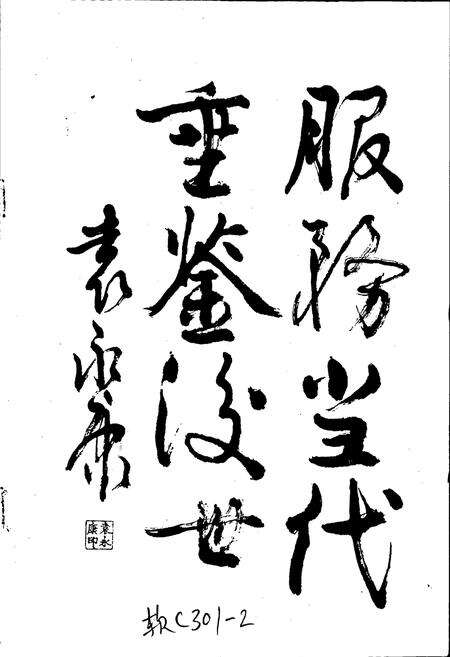 服務当代
垂鉴後世
袁永康
袁永
康印
软C301-2